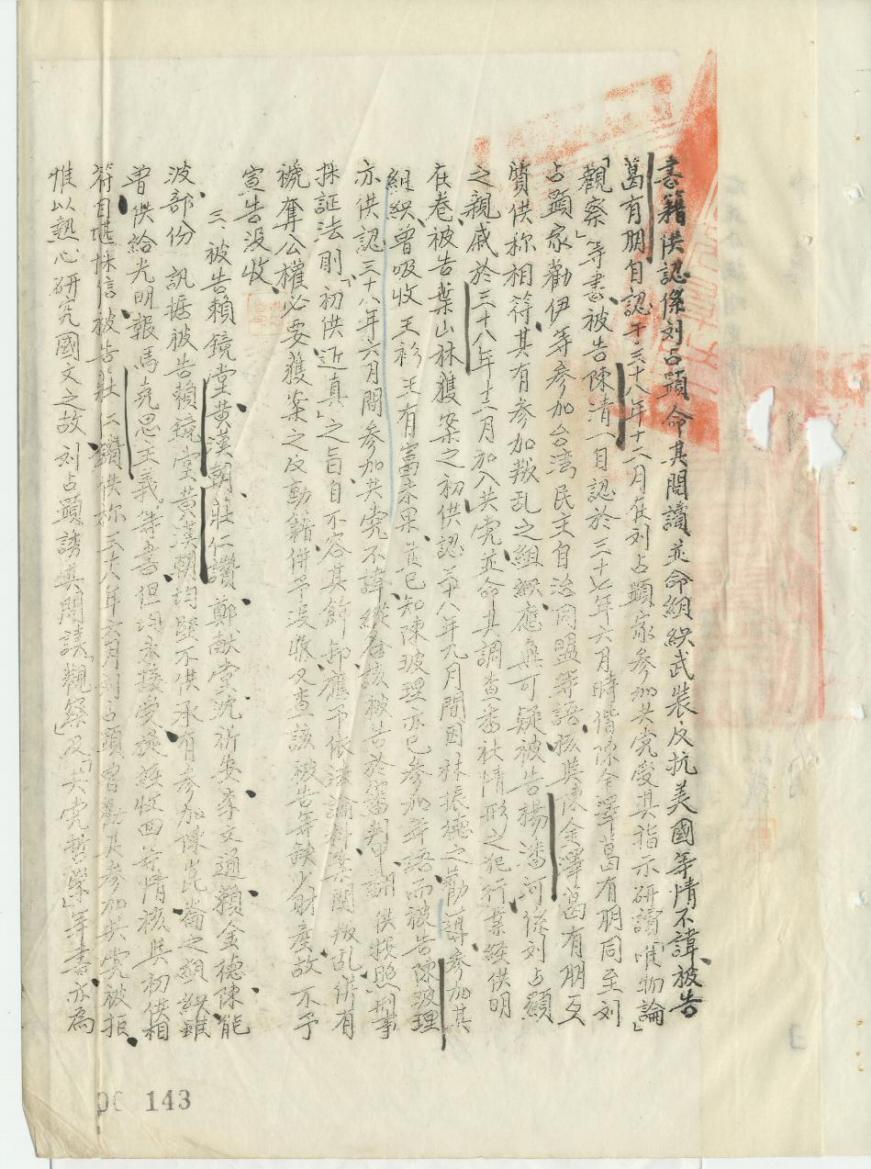 書籍供認係刘占顕命其閱讀並命組織武裝反抗美國等情不諱被告
葛有朋自認于三十八年十二月在刘占顕家參加共党受其指示研讀「唯物論」
「觀察」等書被告陳清一自認於三十七年六月時偕陳金澤葛有朋同至刘
占顕家勸伊等參加台湾民主自治同盟等語核與陳金澤葛有朋互
質供称相符其有參加叛乱之組織應無可疑被告楊潘河係刘占顕
之親戚於三十八年十二月加入共党並命其調查番社情形之犯行業經供明
在卷被告葉山林獲案之初供認卅八年九月間因林振德之勸導參加其
組織曾吸收王衫王有富未果並已知陳玻理亦已參加等語而被告陳玻理
亦供認三十八年六月間參加共党不諱縱在該被告於審判中翻供按照刑事
採証法則「初供近真」之旨自不容其飾卸應予依法論科其閱叛乱併有
褫奪公權必要獲案之反動籍併予没收又查該被告等缺少財產故不予
宣告没收
三、被告賴鏡堂黄漢朝莊仁讚鄭献堂沈祈安李文通賴金德陳能
波部份 訊據被告賴鏡堂黄漢朝均堅不供承有參加陳崑崙之組織雖
曾供給光明報馬克思主義等書但均未接受旋経收回等情核與初供相
符自堪採信被告莊仁讚供称三十八年六月刘占顕曾勸其參加共党被拒
惟以熱心研究國文之故刘占顕誘其閱讀「觀察」及「共党哲學」等書亦為
143